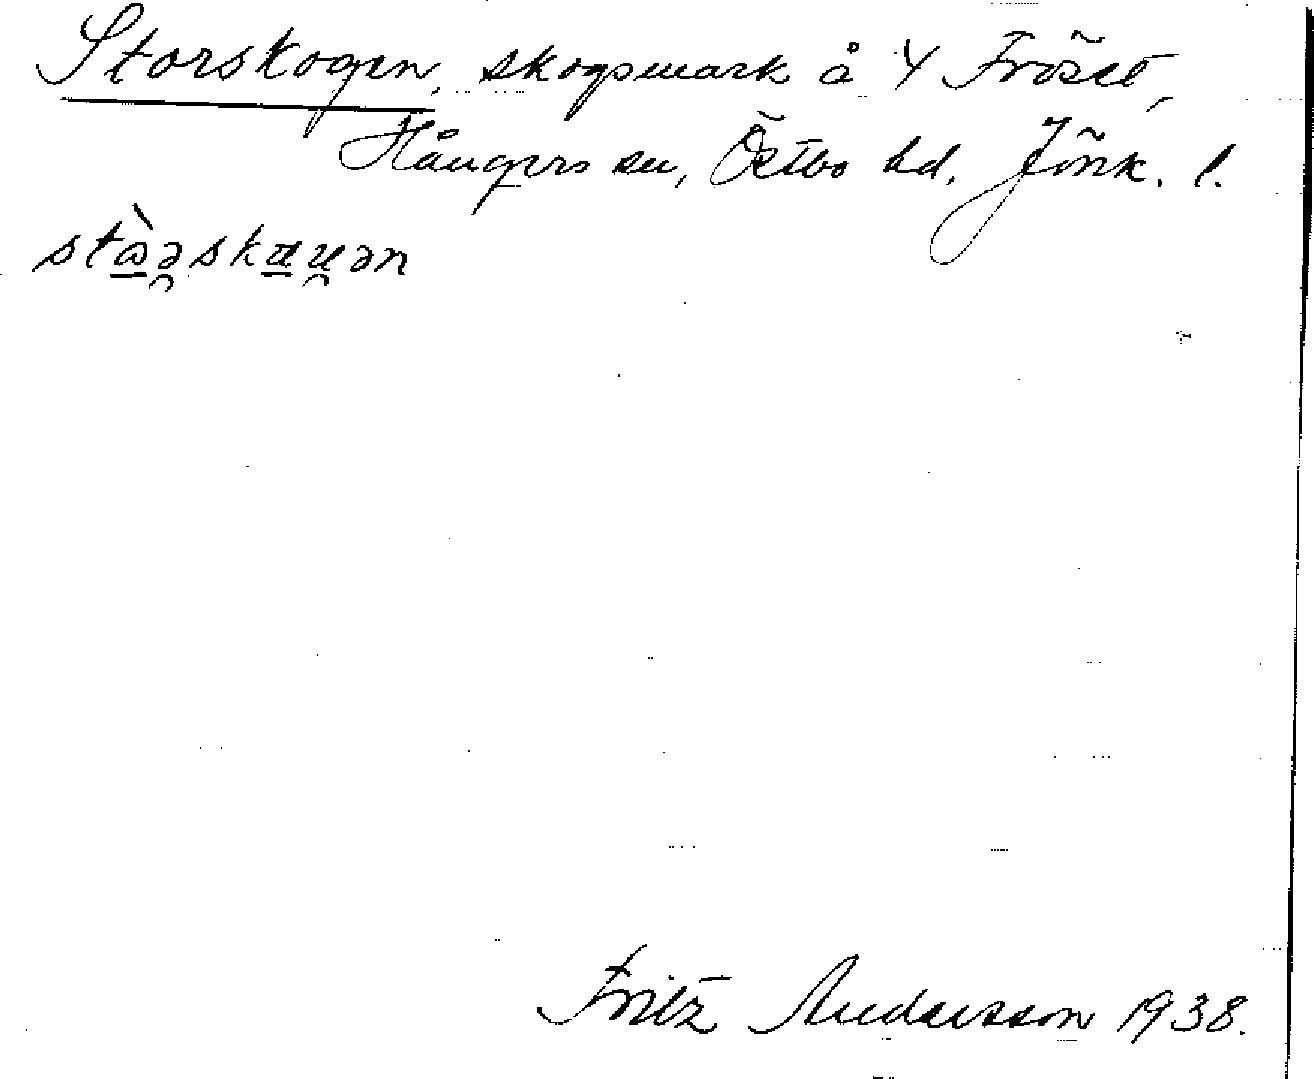 Storskogen, skogsmark å 4 Fröset,
Hångers sn, Östbo hd, Jönk. l.
Fritz Andersson 1938.